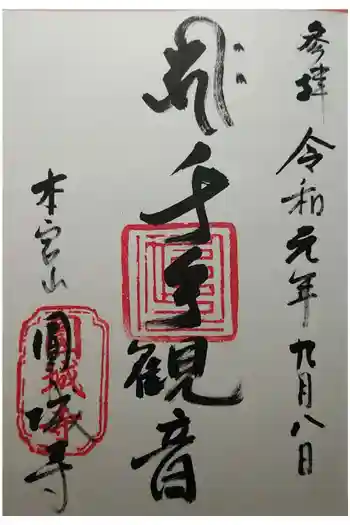 参拝 令和元年九月八日
千手観音
本宮山
圓城寺